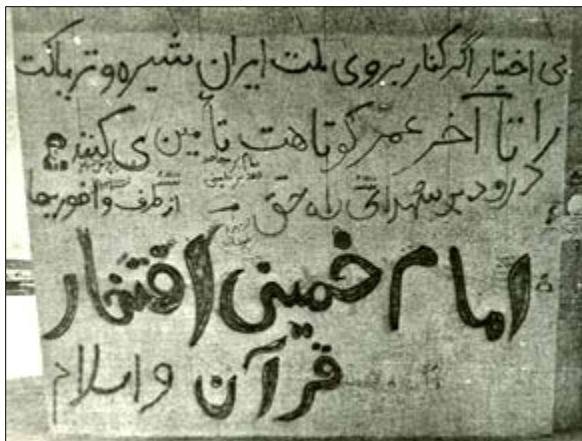 بی اختیار اگر کنار بروی ملت ایران شیره و تریاکت
را تا آخر عمر کوتاهت تأمین می کنند
درود بر شهدای راه حق → از طرف وافوریها
امام خمینی افتخار
قرآن و اسلام